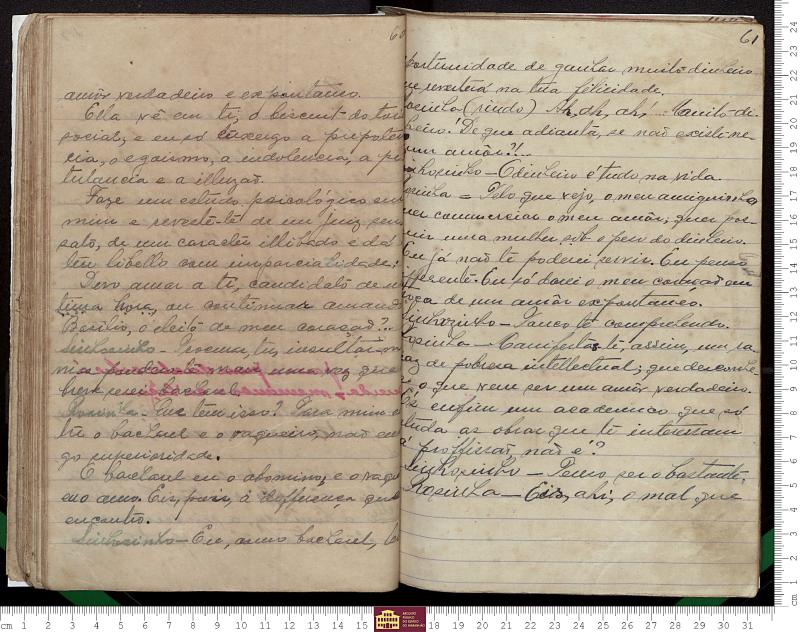 60
amôr verdadeiro e expontaneo.
Ella vê em ti, o biscuit do
social; e eu só enxergo a prepoten
cia, o egoismo, a indolencia, a pe
tulancia e a illuzão.
Faze um estudo psicológico em
mim e reveste-te de um juiz sen
sato, de um caracter illibado e dá
teu libello com imparcialidade:
Devo amar a ti, candidato de
tima hora, ou continuar amando
Basilio, o eleito de meu coração?...
Sinhozinho – Procura, tu, insultar
nia mais uma vez que
bacharel
Rosinha – Que tem isso? Para mim
tre o bacharel e o vaqueiro, não en
go superioridade.
O bacharel eu o abomino, e o vaq
eu o amo. Eis, pois, á differença que
encontro.
Sinhozinho – Eu, como bacharel,
61
portunidade de ganhar muito dinheiro
ue reverterá na tua felicidade.
osinha (rindo) Ah, ah, ah! Muito di-
heiro! De que adianta, se não existe ne-
um amôr?!..
inhozinho – O dinheiro é tudo na vida.
osinha = Pelo que vejo, o meu amiguinho
uer commerciar o meu amôr; quer pos-
uir uma mulher sob o peso do dinheiro.
Eu já não te poderei servir. Eu penso
fferente. Eu só darei o meu coração em
roca de um amôr expontaneo.
Sinhozinho – Pouco te comprehendo.
Rosinha – Manifestas-te, assim, um ra-
paz de pobreza intellectual; que desconhe
e o que vem ser um amôr verdadeiro.
És enfim um academico que só
tuda as obras que te interessam
á proffissão, não é?
Sinhozinho – Penso ser o bastante.
Rosinha – Eis, ahi, o mal que
ARQUIVO PÚBLICO DO ESTADO DO MARANHÃO